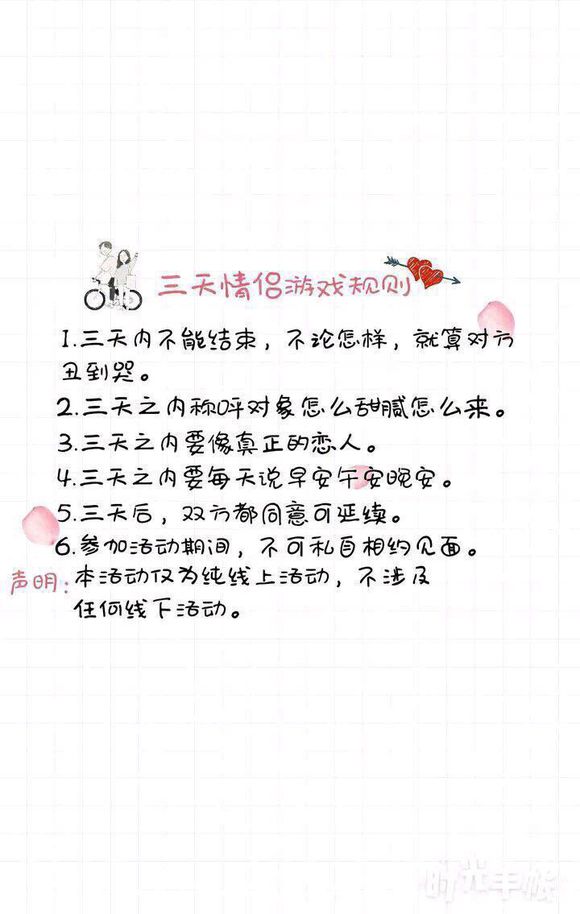 三天情侣游戏规则
1.三天内不能结束，不论怎样，就算对方
丑到哭。
2.三天之内称呼对象怎么甜腻怎么来。
3.三天之内要像真正的恋人。
4.三天之内要每天说早安午安晚安。
5.三天后，双方都同意可延续。
6.参加活动期间，不可私自相约见面。
声明：本活动仅为纯线上活动，不涉及
任何线下活动。
时光手帐